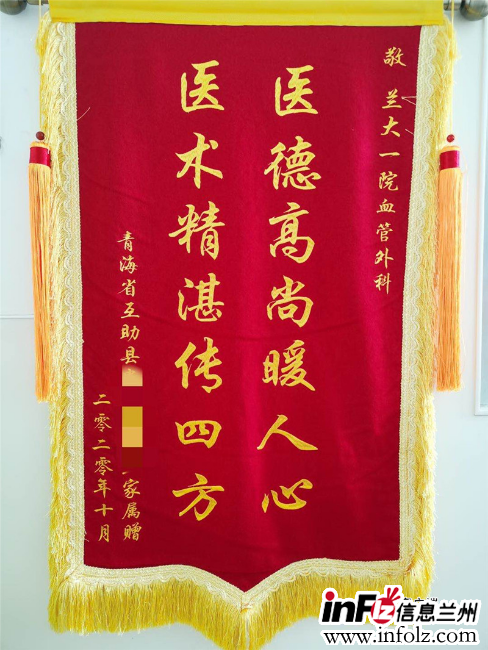 敬 兰大一院血管外科
医德高尚暖人心
医术精湛传四方
青海省互助县
家属赠
二零二零年十月
inflz信息兰州
www.infolz.com